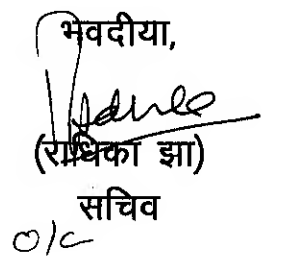 भवदीया,
(राधिका झा)
सचिव
O/C